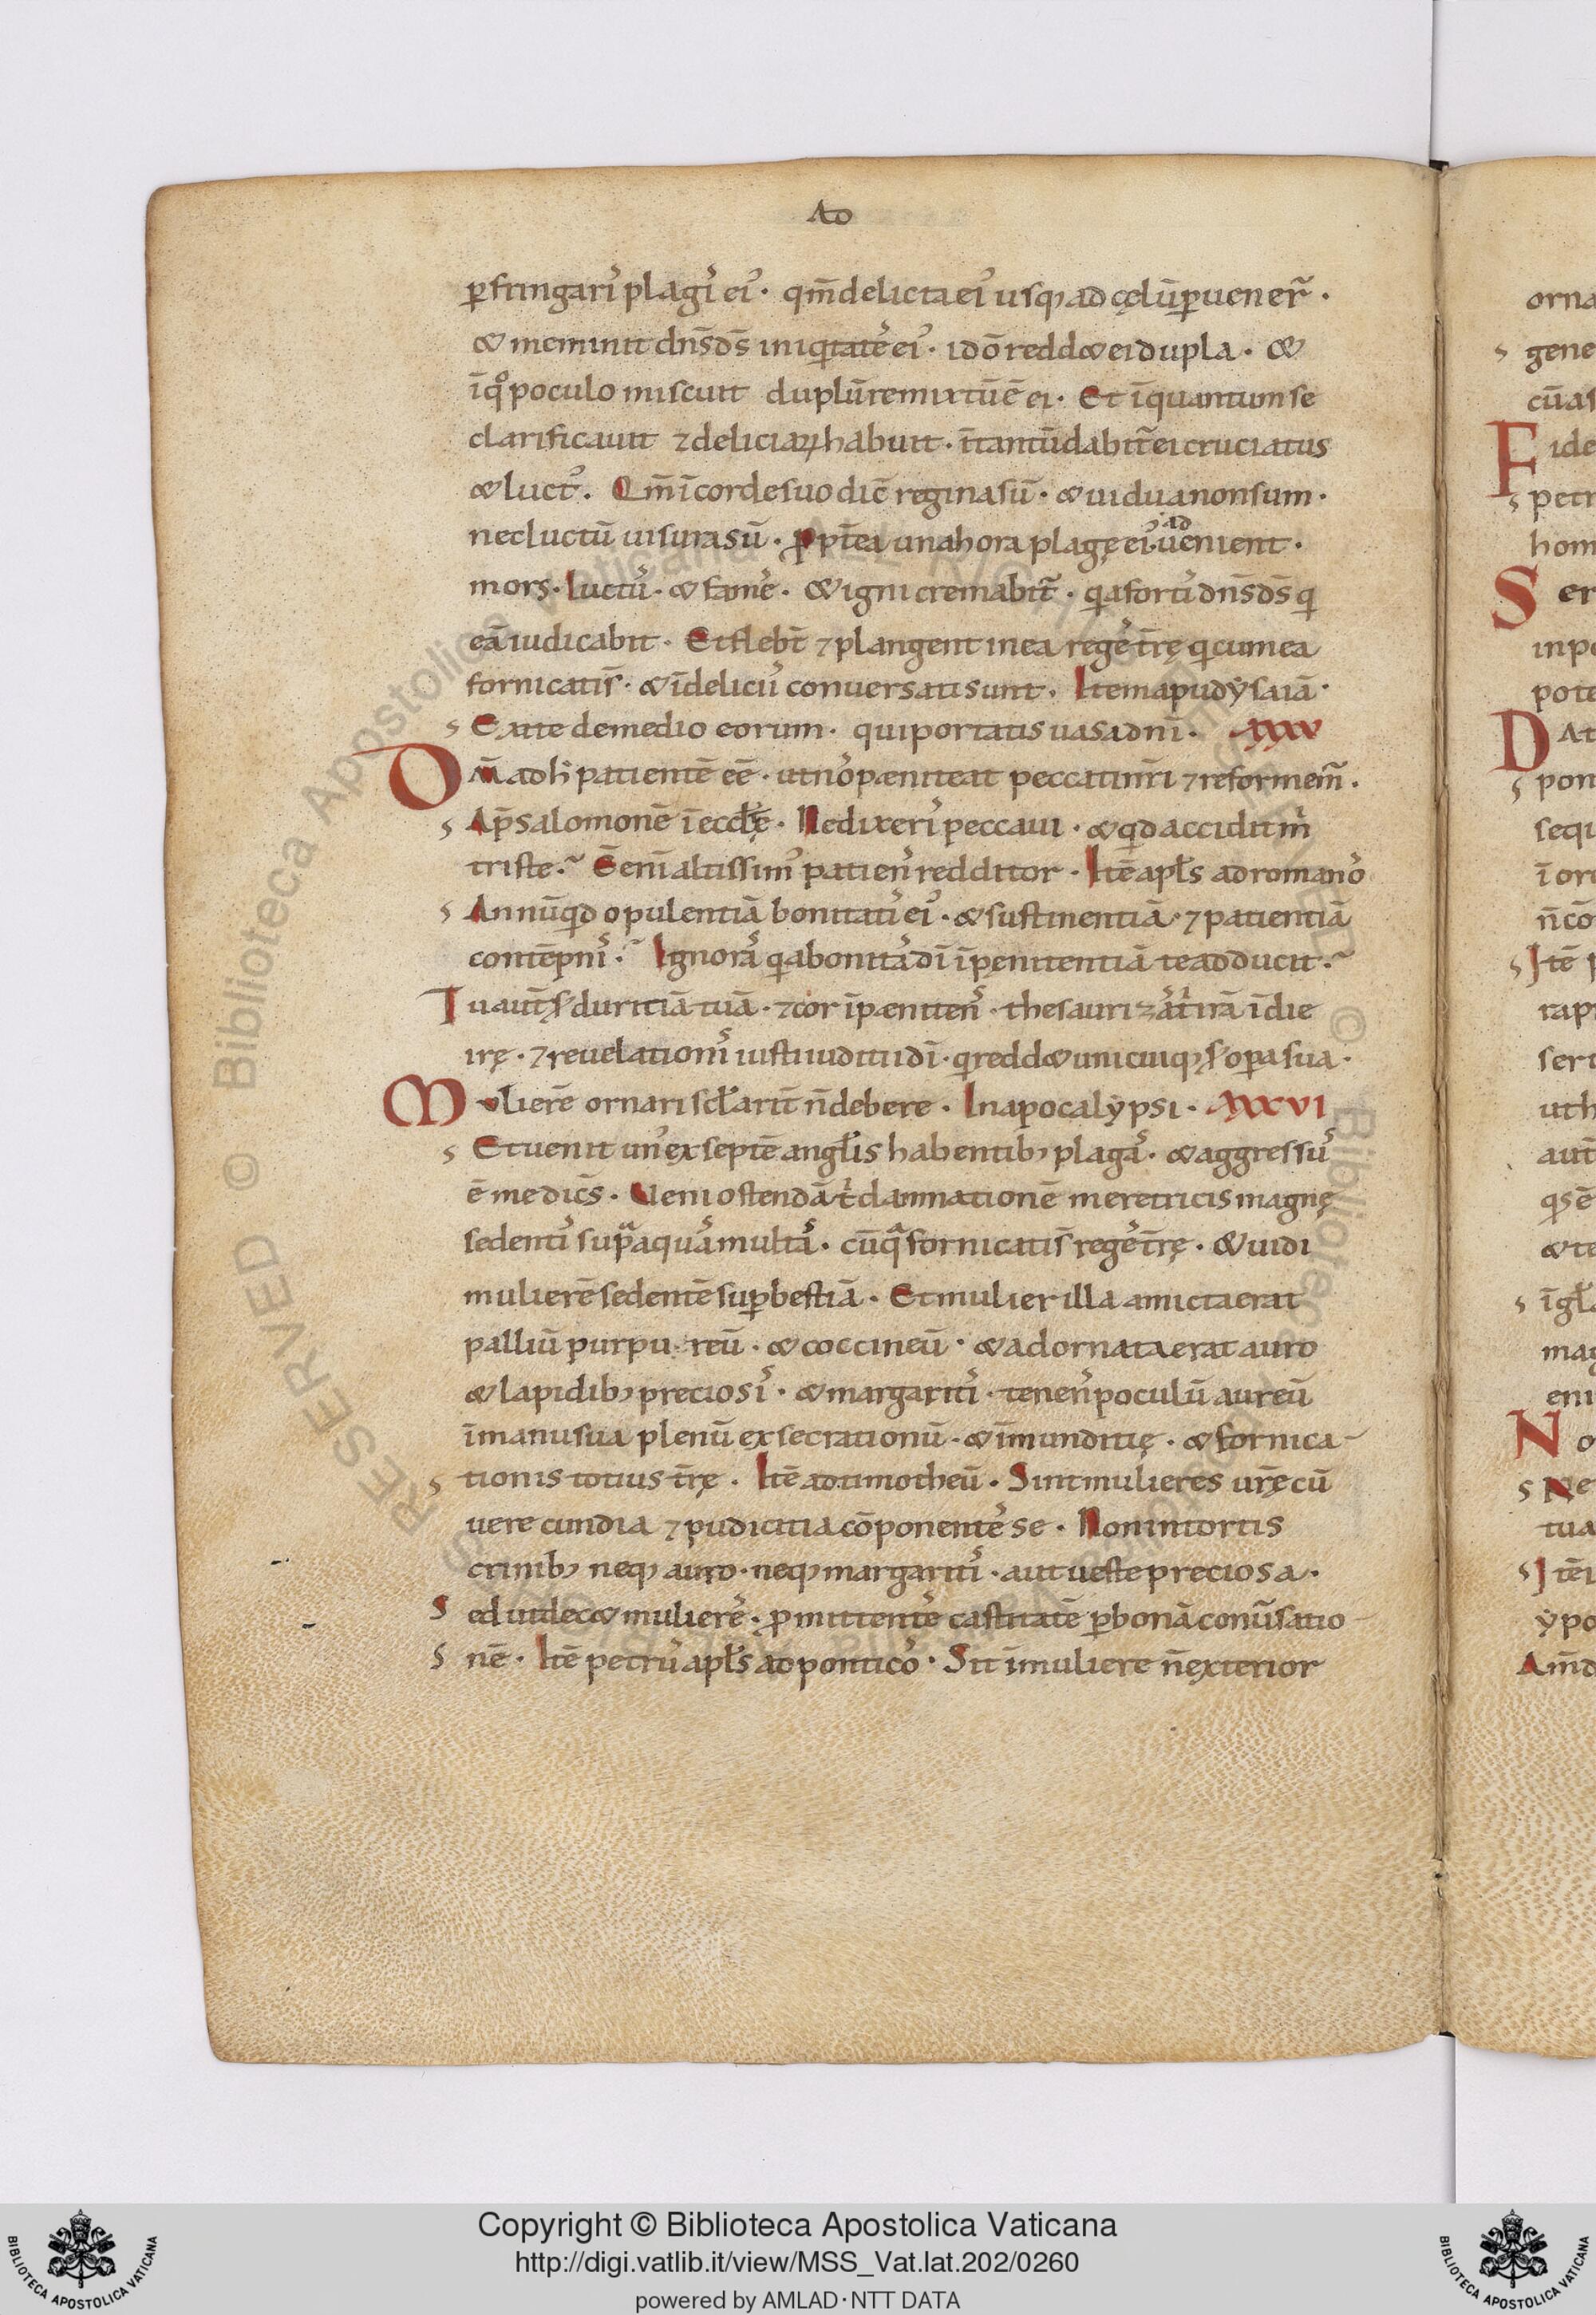 Ao
ꝑfringaris plagis ei᾽· qm̄ delicta ei᾽ usq; ad cęlū ꝑuener̄·
& meminit dn̄s ds̄ iniqͥtates ei᾽· idō redd& ei dupla· &
ī qͦ poculo miscuit duplū remixtū ē ei· Et ī quantum se
clarificauit ⁊ deliciaꝝ habuit· ī tantū dabit̄ ei cruciatus
& luct᾽. Qm̄ ī corde suo dic̄ regina sū· & uidua non sum·
nec luctū uisura sū· ꝓpt̄ea una hora plagę ei᾽ aduenient·
mors· luctus· & fames· & igni cremabit̄· qͥa fortis dn̄s ds̄ qͥ
eā iudicabit· Et flebt̄ ⁊ plangent in ea reges t̄rę qͥ cum ea
fornicati s̄· & ī deliciis conuersati sunt. Item apud ẏsaiā·
s Exite de medio eorum· qui portatis uasa dnī· XXXV
Dm̄ ad h᾽ patientē eē· ut nos pæniteat peccati nr̄i ⁊ reformem̄·
s Ap̄ salomonē ī ecclę· Ne dixeris peccaui· & qͥd accidit m̄
triste? Ē enī altissim᾽ patiens redditor· Itē apl̄s ad romanos
s An nūqͥd opulentiā bonitatis ei᾽· & sustinentiā· ⁊ patientiā
contēpnis? Ignoras qͥa bonitas dī ī pęnitentiā te adducit?
Tu aut̄ s̄ duritiā tuā· ⁊ cor īpænitens· thesaurizas t̄ irā ī die
irę· ⁊ reuelationis iusti iuditii dī· qͥ redd& unicuiq; s̄ oꝑa sua·
Muliere̅ ornari scl̄arit̄ n̄ debere· In apocalẏpsi· XXXVI
s Et uenit un᾽ ex septē angl̄is habentib; plagas· & aggressus
ē me dics̄· Ueni ostendā t̄ damnationē meretricis magnę
sedentis supͣ aquas multas· cū qͣ fornicati s̄ reges t̄rę· & uidi
mulierē sedentē suꝑ bestiā· Et mulier illa amicta erat
palliū purpureū· & coccineū· & adornata erat auro
& lapidib; preciosis· & margaritis· tenens poculū aureū
ī manu sua plenū exsecrationū· & īmunditię· & fornica-
s tionis totius t̄rę· Itē ad timotheū· Sint mulieres ur̄ę cū
uerecundia ⁊ pudicitia cōponentes se· Non in tortis
crinib; neq; auro· neq; margaritis· aut ueste preciosa·
Sed ut dec& mulieres· ꝓmittentes castitatē ꝑ bonā conūsatio
s nē· Itē petrus apl̄s ad ponticos· Sit ī muliere n̄ exterior
orna
s gene
cūas
F ide
s petr
hom
S er
inpo
pote
D At
s pon
sequ
ī ore
n̄ cō
s Itē
rap
seru
uth
aut̄
qͥs ē
&te
s īgl̄
mag
eni
N o
s Ne
tua
s Itēi
ẏpo
Am̄d
Copyright © Biblioteca Apostolica Vaticana
http://digi.vatlib.it/view/MSS_Vat.lat.202/0260
powered by AMLAD·NTT DATA
BIBLIOTECA APOSTOLICA VATICANA
BIBLIOTECA APOSTOLICA VATICANA